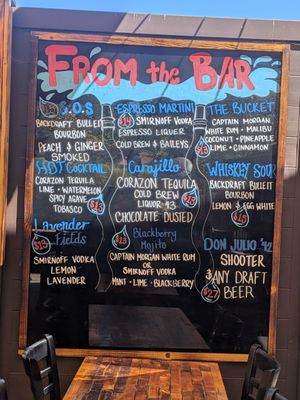 FROM the BAR
S.O.S
BACKDRAFT BULLEIT
BOURBON
PEACH & GINGER
SMOKED
HOT COCKTAIL
CORAZON TEQUILA
LIME - WATERMELON
SPICY AGAVE
TOBASCO
$15
Lavender
Fields
$13
SMIRNOFF VODKA
LEMON
LAVENDER
ESPRESSO MARTINI
$14
SMIRNOFF VODKA
ESPRESSO LIQUER
COLD BREW & BAILEYS
Carajillo
CORAZON TEQUILA
COLD BREW
LIQUOR 43
CHOCOLATE DUSTED
$15
Blackberry
Mojito
$13
CAPTAIN MORGAN WHITE RUM
OR
SMIRNOFF VODKA
MINT - LIME - BLACKBERRY
THE BUCKET
CAPTAIN MORGAN
WHITE RUM - MALIBU
COCONUT - PINEAPPLE
LIME - CINNAMON
$13
WHISKEY SOUR
BACKDRAFT BULLEIT
BOURBON
LEMON & EGG WHITE
$15
DON JULIO '42
SHOOTER
& ANY DRAFT
BEER
$27